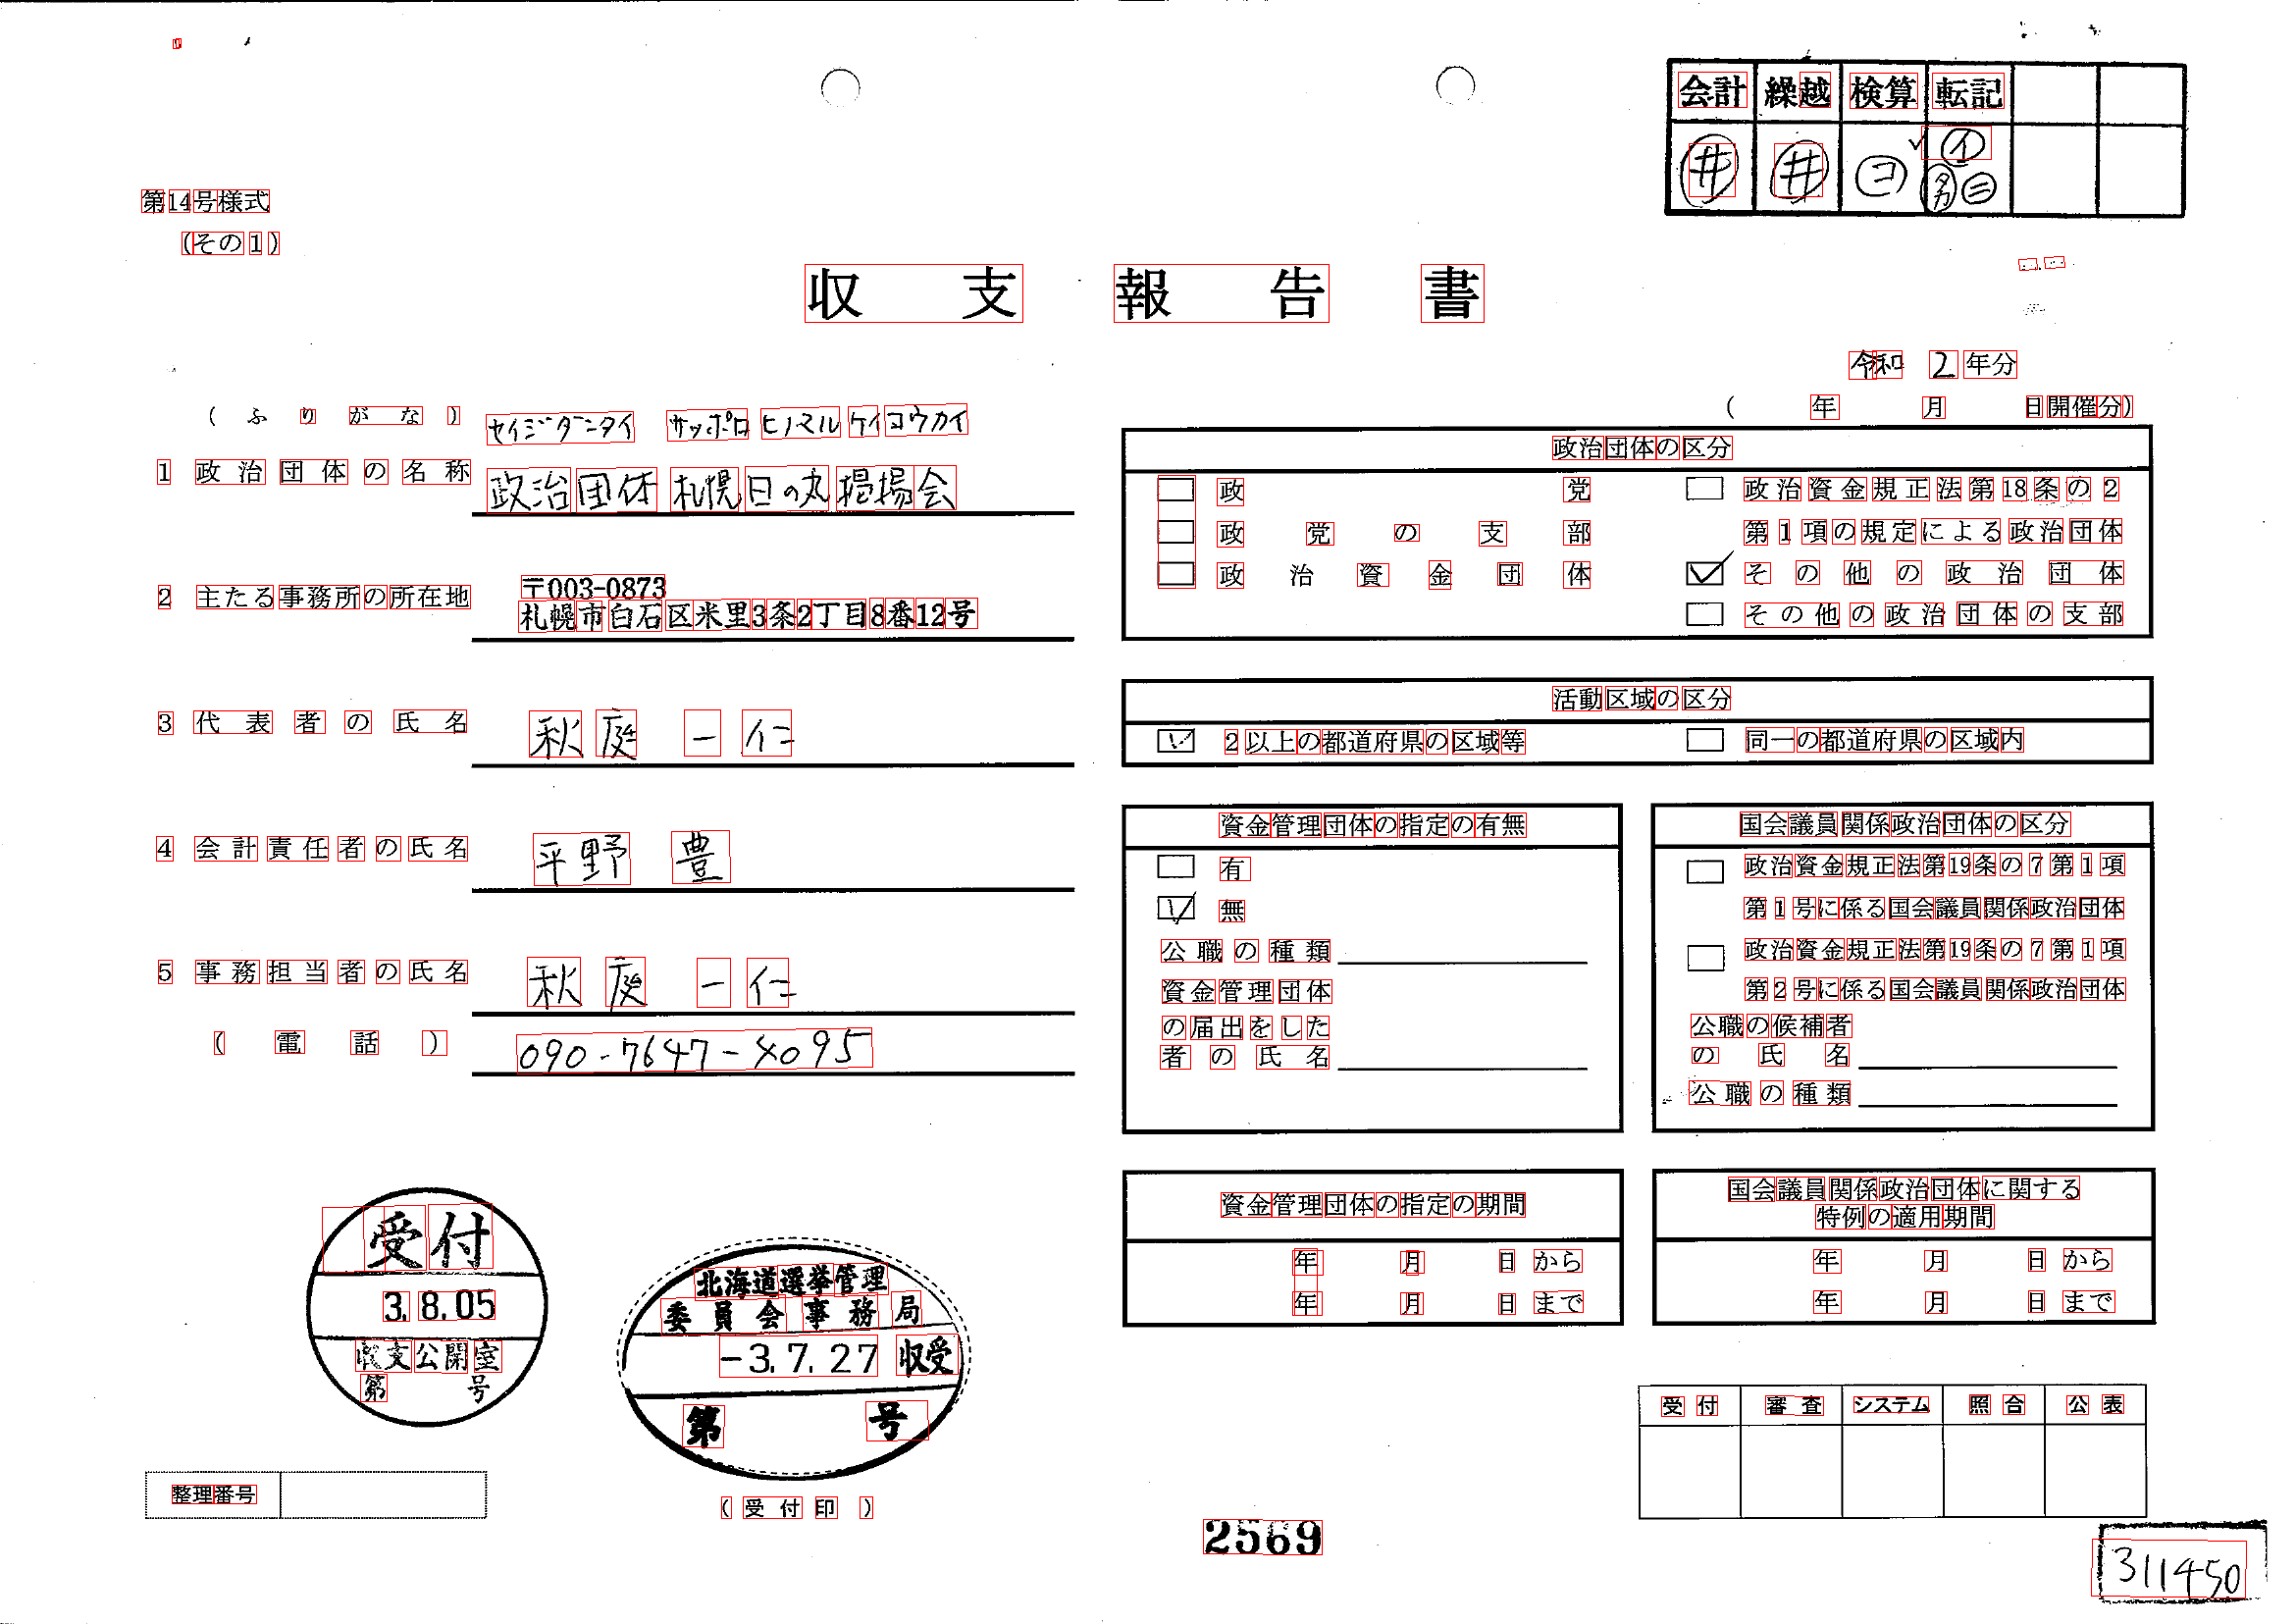 会計 繰越 検算 転記
井 井 コ イ タカ ニ
第14号様式
(その1)
収支報告書
令和 2 年分
( 年 月 日開催分)
(ふりがな) セイジダンタイ サッポロ ヒノマル ケイヨウカイ
1 政治団体の名称 政治団体 札幌日の丸掲揚会
2 主たる事務所の所在地 〒003-0873
札幌市白石区米里3条2丁目8番12号
3 代表者の氏名 秋庭 一仁
4 会計責任者の氏名 平野 豊
5 事務担当者の氏名 秋庭 一仁
(電話) 090-7647-4095
政治団体の区分
□ 政党
□ 政党の支部
□ 政治資金団体
□ 政治資金規正法第18条の2
第1項の規定による政治団体
☑ その他の政治団体
□ その他の政治団体の支部
活動区域の区分
☑ 2以上の都道府県の区域等 □ 同一の都道府県の区域内
資金管理団体の指定の有無
□ 有
☑ 無
公職の種類
資金管理団体
の届出をした
者の氏名
国会議員関係政治団体の区分
□ 政治資金規正法第19条の7第1項
第1号に係る国会議員関係政治団体
□ 政治資金規正法第19条の7第1項
第2号に係る国会議員関係政治団体
公職の候補者
の氏名
公職の種類
資金管理団体の指定の期間
年 月 日から
年 月 日まで
国会議員関係政治団体に関する
特例の適用期間
年 月 日から
年 月 日まで
受付
3.8.05
収支公開室
第 号
北海道選挙管理
委員会事務局
-3.7.27 収受
第 号
(受付印)
整理番号
受付 審査 システム 照合 公表
2569
311450